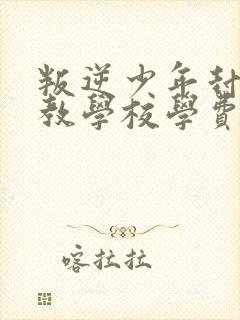 叛逆少年封
教學校學費
喀拉拉